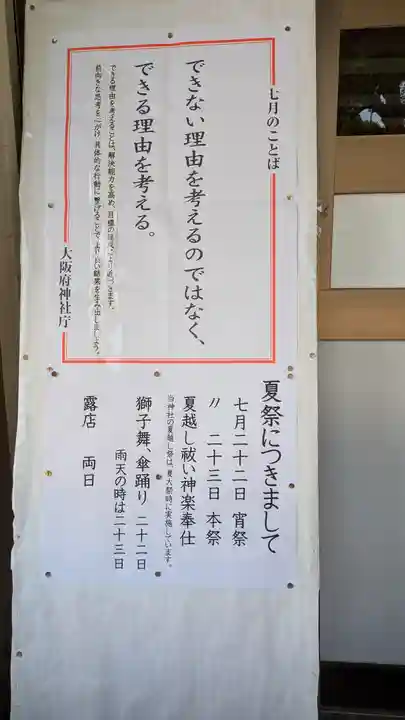 七月のことば
できない理由を考えるのではなく、
できる理由を考える。
できる理由を考えることは、解決能力を高め、目標の達成へと近づきます。
前向きな思考を心がけ、具体的な行動に繋げることで、より良い結果を生み出しましょう。
大阪府神社庁
夏祭につきまして
七月二十二日 宵祭
〃 二十三日 本祭
夏越し祓い神楽奉仕
当神社の夏越し祭は、夏大祭時に実施しています。
獅子舞、傘踊り 二十二日
雨天の時は二十三日
露店 両日